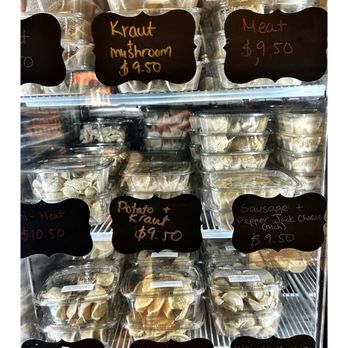 Kraut
+
mushroom
$9.50
Meat
$9.50
- Meat
$10.50
Potato +
Kraut
$9.50
Sausage +
Pepper Jack Cheese
$9.50